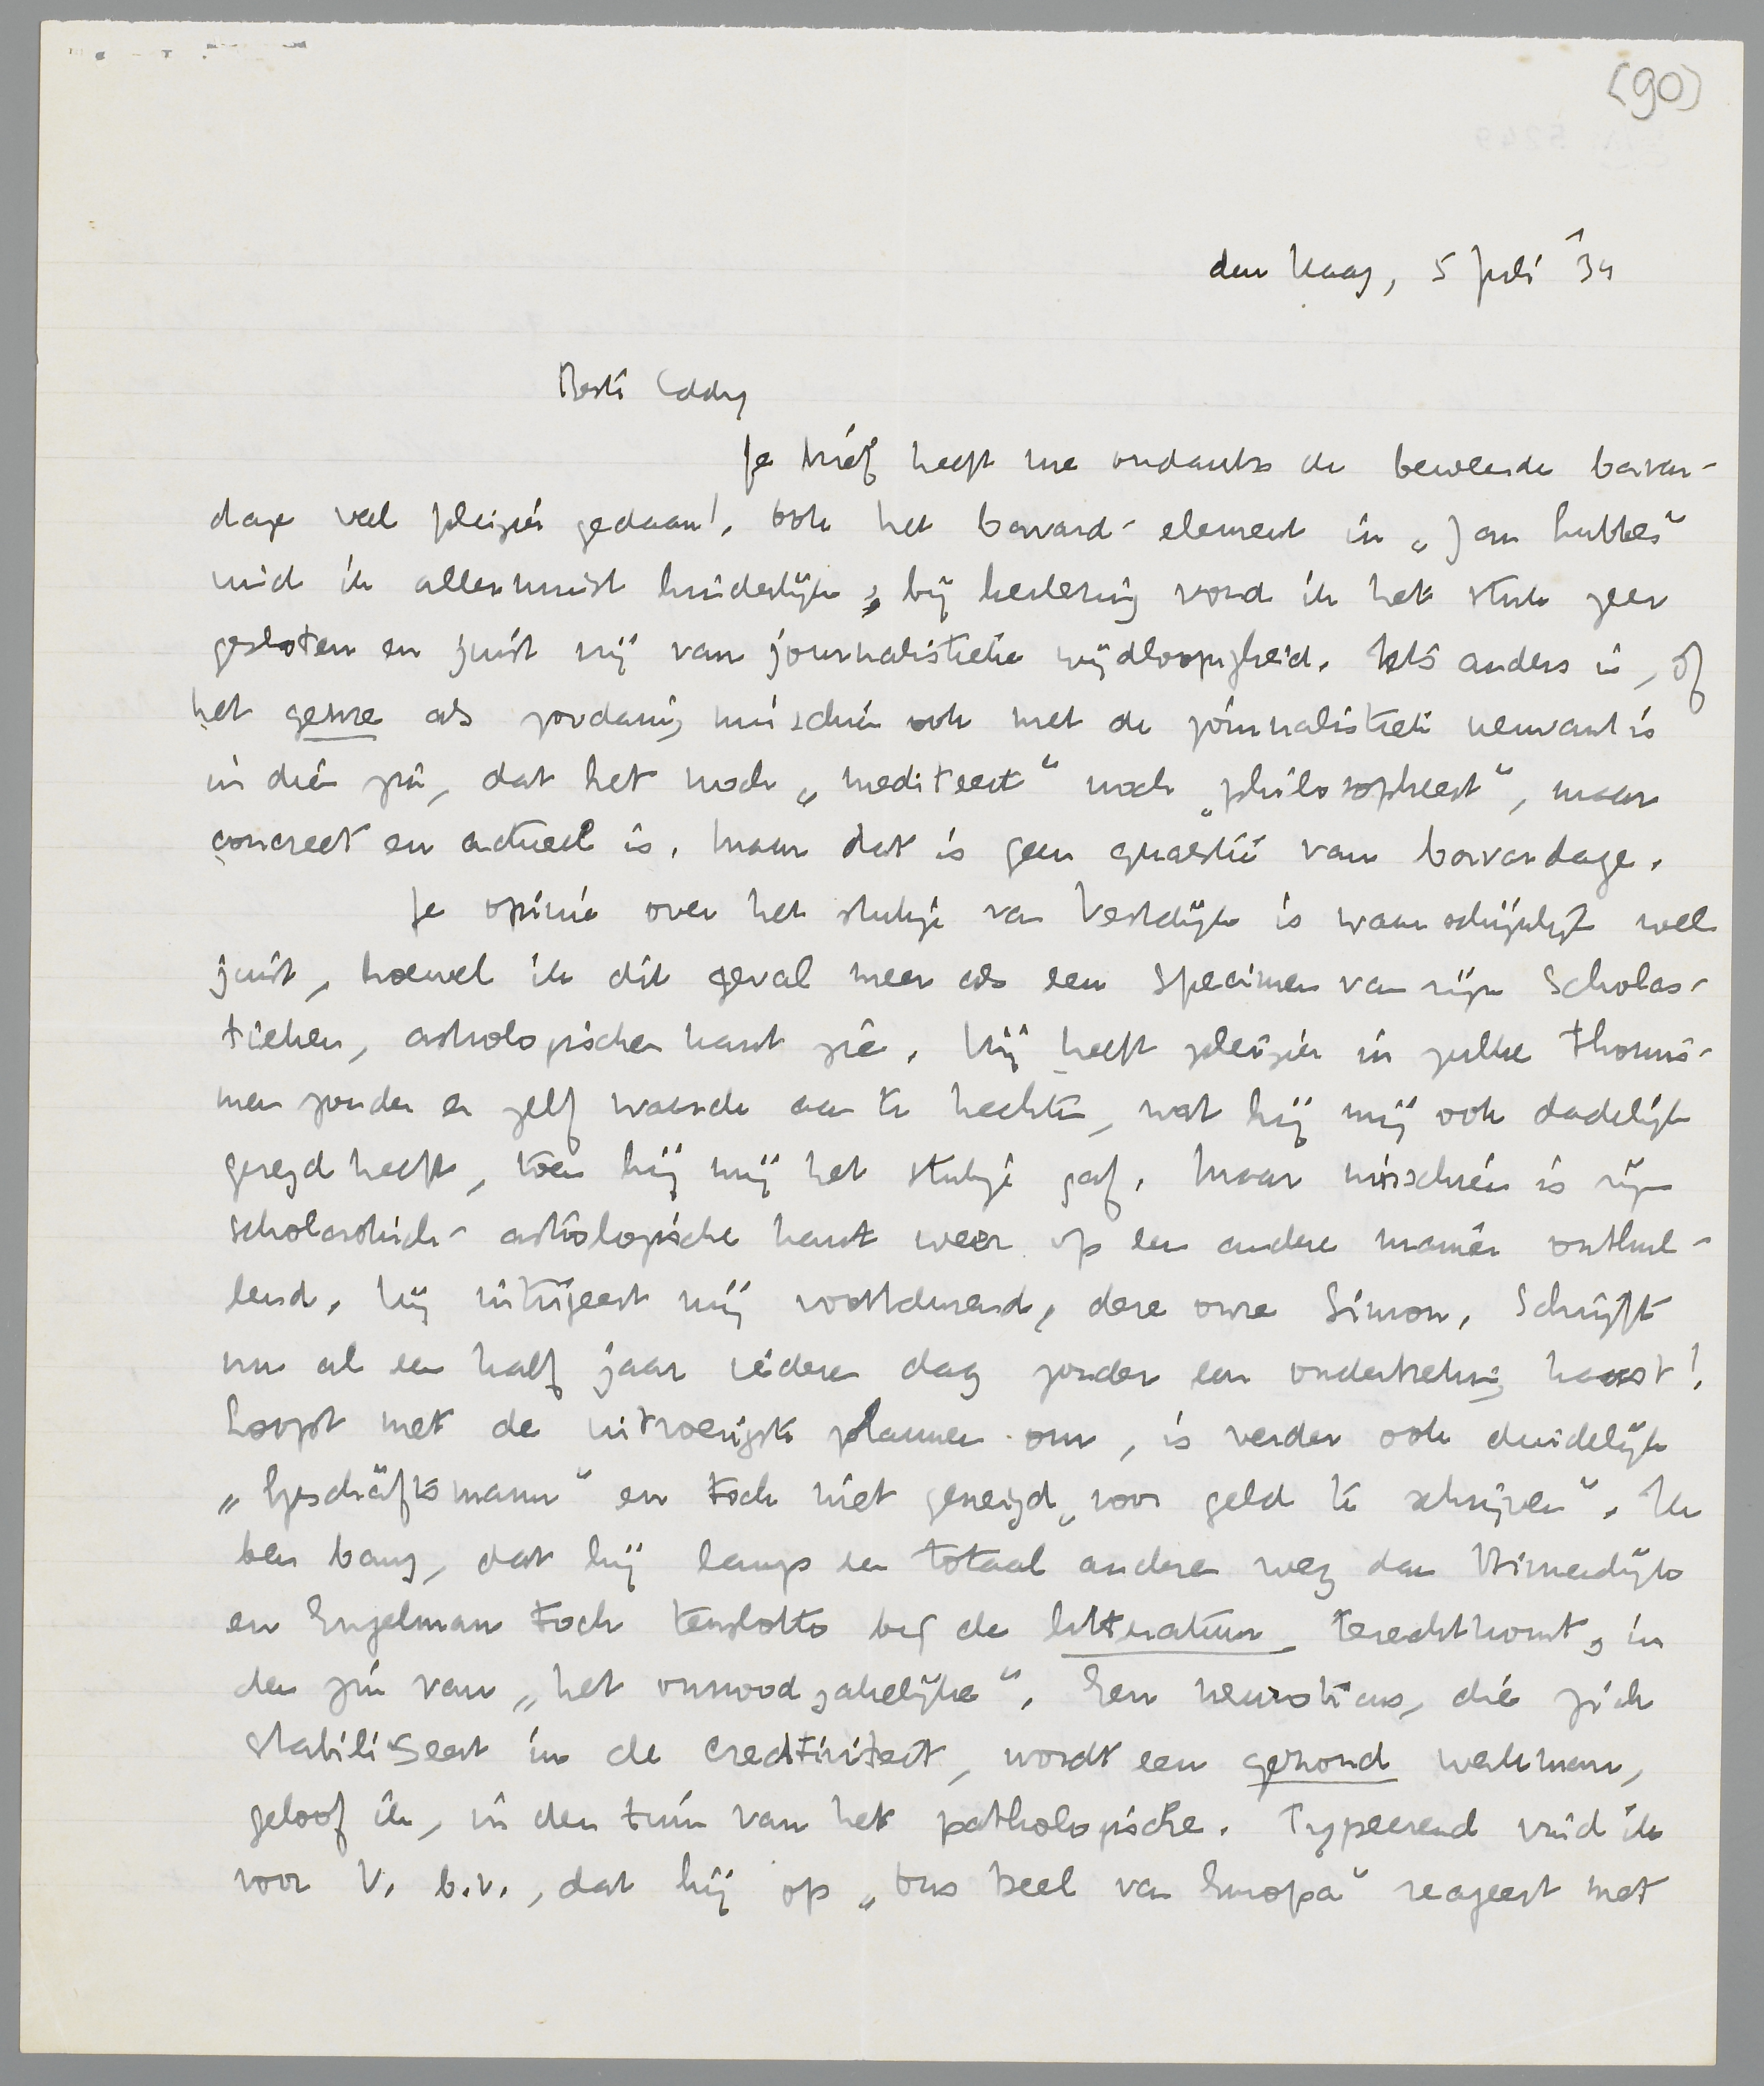 (90)
den Haag, 5 Juli '34
Beste Eddy
Je brief heeft me ondanks de beweerde bavar-
dage veel pleizier gedaan! Ook het bavard-element in „Jan Lubbes”
vind ik allerminst hinderlijk; bij herlezing vond ik het stuk zeer
gesloten en juist vrij van journalistieke wijdloopigheid. Iets anders is, of
het genre als zoodanig misschien ook met de journalistiek verwant is
in dien zin, dat het noch „mediteert” noch „philosopheert”, maar
concreet en actueel is. Maar dat is geen quaestie van bavardage.
Je opinie over het stukje van Vestdijk is waarschijnlijk wel
juist, hoewel ik dit geval meer als een specimen van zijn scholas-
tieken, astrologischen kant zie. Hij heeft pleizier in zulke thomis-
men zonder er zelf waarde aan te hechten, wat hij mij ook dadelijk
gezegd heeft, toen hij mij het stukje gaf. Maar misschien is zijn
scholastisch-astrologische kant weer op een andere manier onthul-
lend. Hij intrigeert mij voortdurend, deze onze Simon. Schrijft
nu al een half jaar iederen dag zonder een onderbreking haast!
Loopt met de uitvoerigste plannen om, is verder ook duidelijk
„Geschäftsmann” en toch niet geneigd „voor geld te schrijven”. Ik
ben bang, dat hij langs een totaal anderen weg dan Binnendijk
en Engelman toch tenslotte bij de litteratuur terechtkomt, in
den zin van „het onnoodzakelijke”. Een neuroticus, die zich
stabiliseert in de creativiteit, wordt een gezond werkman,
geloof ik, in den tuin van het pathologische. Typeerend vind ik
voor V. b.v., dat hij op „Ons Deel van Europa” reageert met